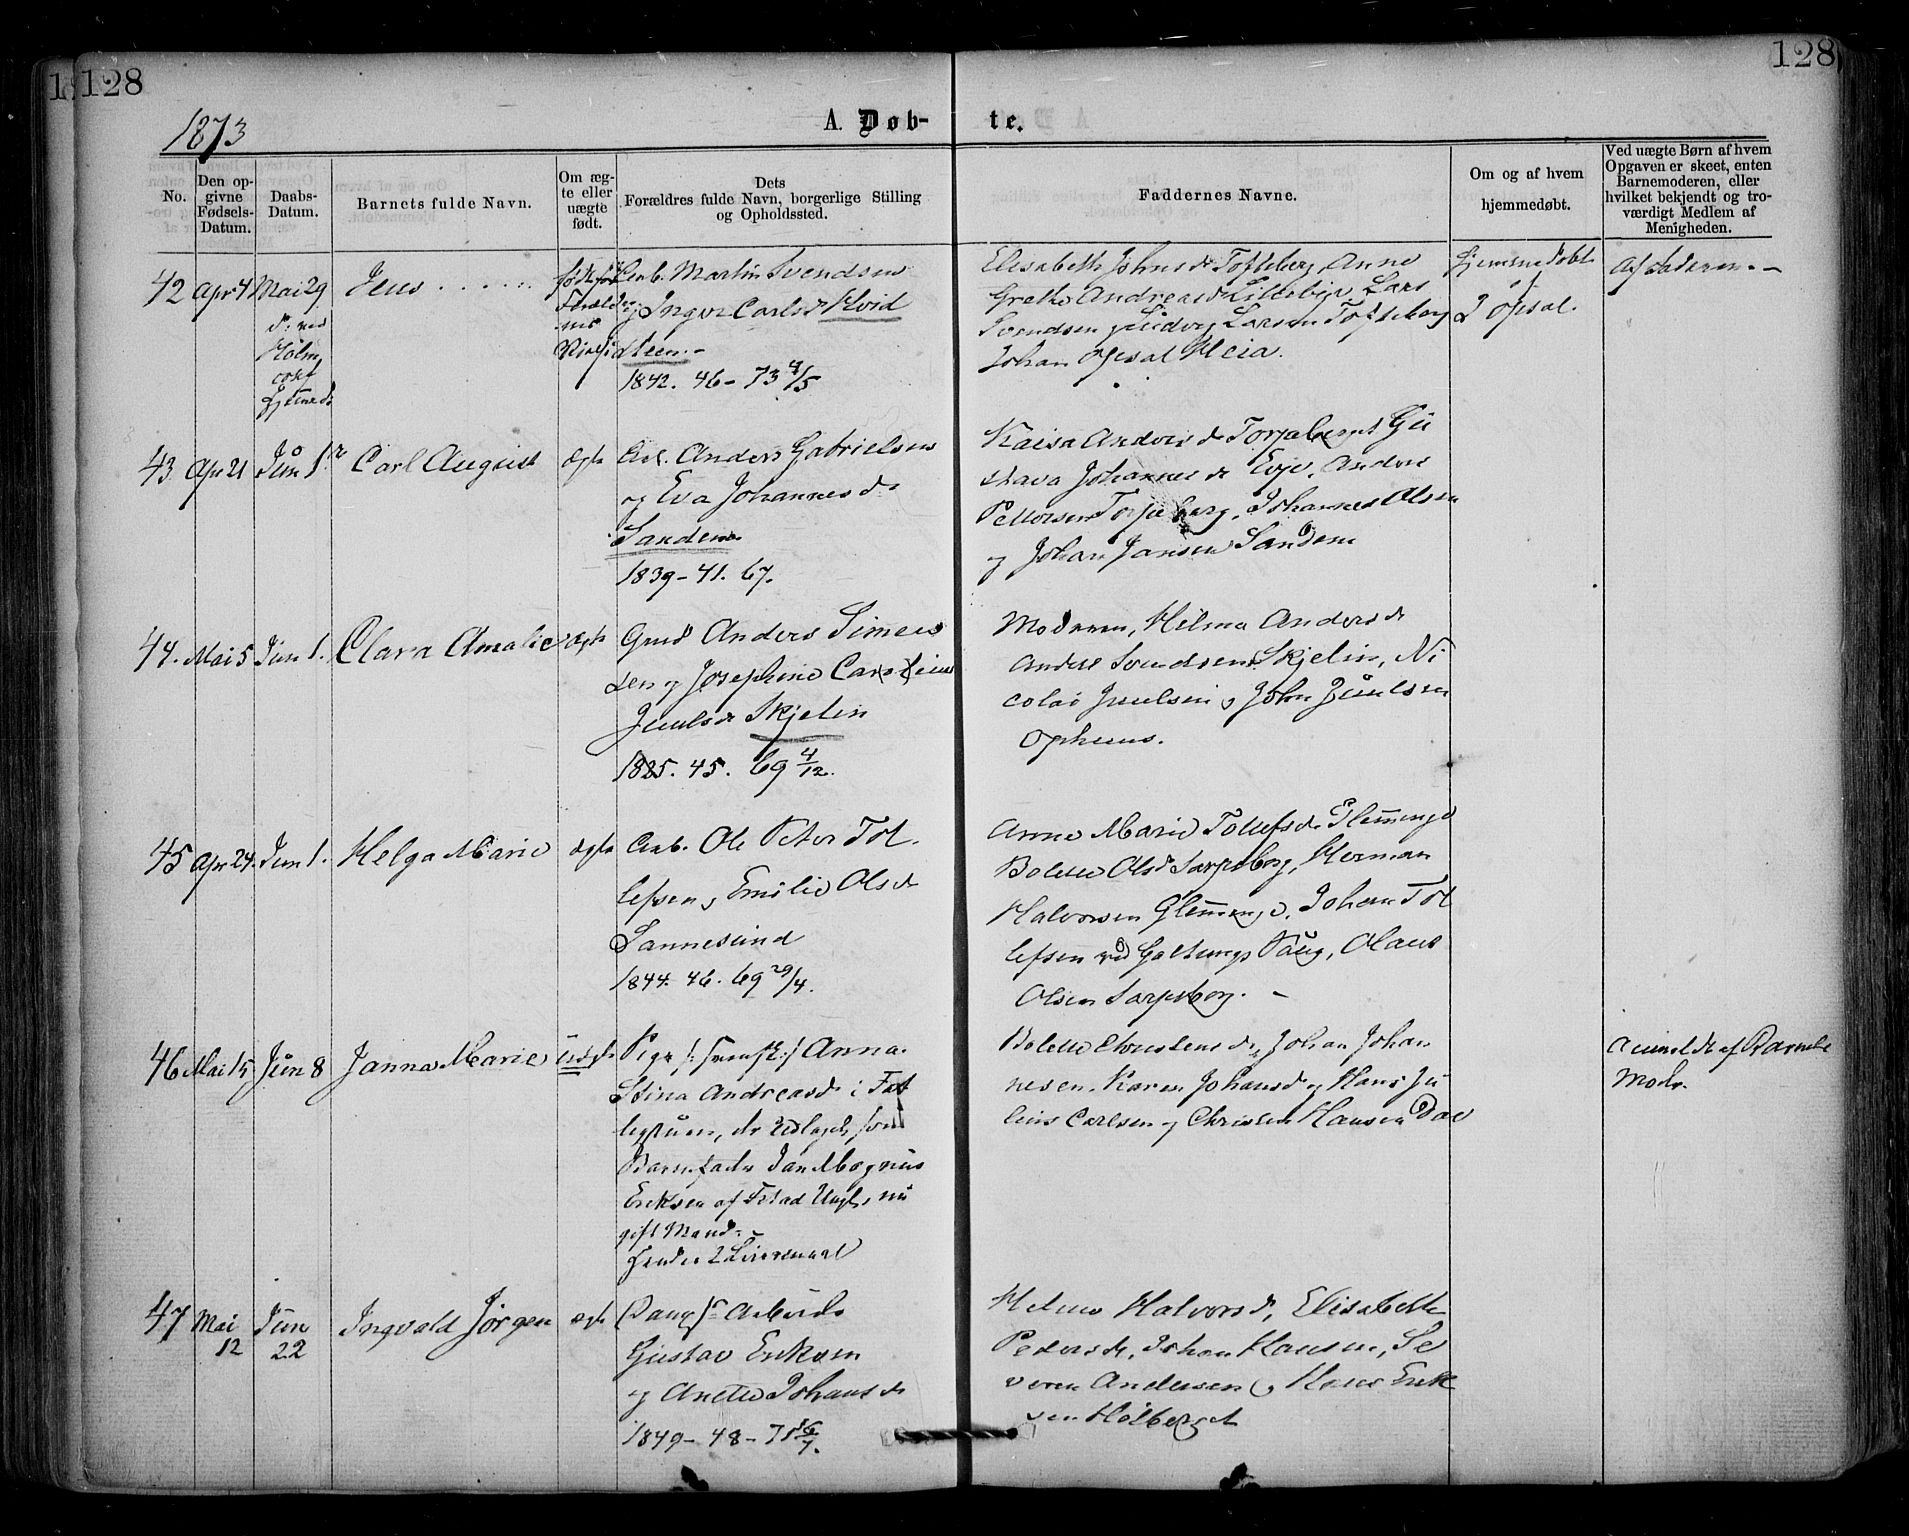 128
128
1873
A. Døb-
te.
No.
Den op-
givne
Fødsels-
Datum.
Daabs-
Datum.
Barnets fulde Navn.
Om æg-
te eller
uægte
født.
Dets
Forældres fulde Navn, borgerlige Stilling
og Opholdssted.
Faddernes Navne.
Om og af hvem
hjemmedøbt.
Ved uægte Børn af hvem
Opgaven er skeet, enten
Barnemoderen, eller
hvilket bekjendt og tro-
værdigt Medlem af
Menigheden.
42 Apr 4 Mai 29 Jens
født før
Forældre
nes
Arb. Martin Svendsen
og Inger Carlsd Hvid
steen.-
1842. 46 - 73 4/5
Elisabeth Johnsd Tofteberg, Anne
Grethe Andreasd Lilleby, Lars
Svendsen, Ludvig Larsen Tofteberg
Johan Opsal Heia.
Hjemmedøbt
J Opsal.
Af Faderen. -
43 Apr 21 Jun 1. Carl August ægte
Arb. Anders Gabrielsen
og Eva Johannesd
Sanden
1839 - 41. 67.
Kaisa Andersd Torpeberget Gu
stava Johannesd Evje, Anders
Pettersen Torpeberg, Johannes Olsen
og Johan Jansen Sanden
44. Mai 5 Jun 1. Clara Amalie ægte
Grud Anders Simen
sen og Josephine Carstine
Juulsd Skjelin
1825. 45. 69 4/12.
Moderen, Hilma Andersd
Anders Svendsen Skjelin, Ni
colai Juulsen, John Juulsen
Opheim.
45 Apr 24. Jun 1. Helga Marie ægte
Arb. Ole Peter Tol
lefsen, Emilie Olsd
Sannesund
1844. 46. 69 29/4.
Anne Marie Tollefsd Glemminge
Bolette Olsd Sarpsborg, Herman
Halvorsen Glemminge, Johan Tol
lefsen ved Galtungs Vaug, Olaus
Olsen Sarpsborg. -
46 Mai 15 Jun 8 Janna Marie Uægte
Pige /: svensk :/ Anna
Stina Andreasd i
, der udlagde som
Barnefader Jan Magnus
Eriksen af Ungk, nu
gift Mand.
Hendes 2 Leiermaal
Bolette Christensd, Johan Johan
nesen, Karen Johansd og Hans Ju
lius Carlsen og Christen Hansen Dal
Anmeldt af Barnets
Moder.
47 Mai
12
Jun
22
Ingvald Jørgen ægte
Arbeider
Gustav Eriksen
og Anette Johansd
1849 - 48 -
Helene Halvorsd, Elisabeth
Pedersd, Johan Hansen, Se
veren Andersen og Hans Erik
sen Holberget